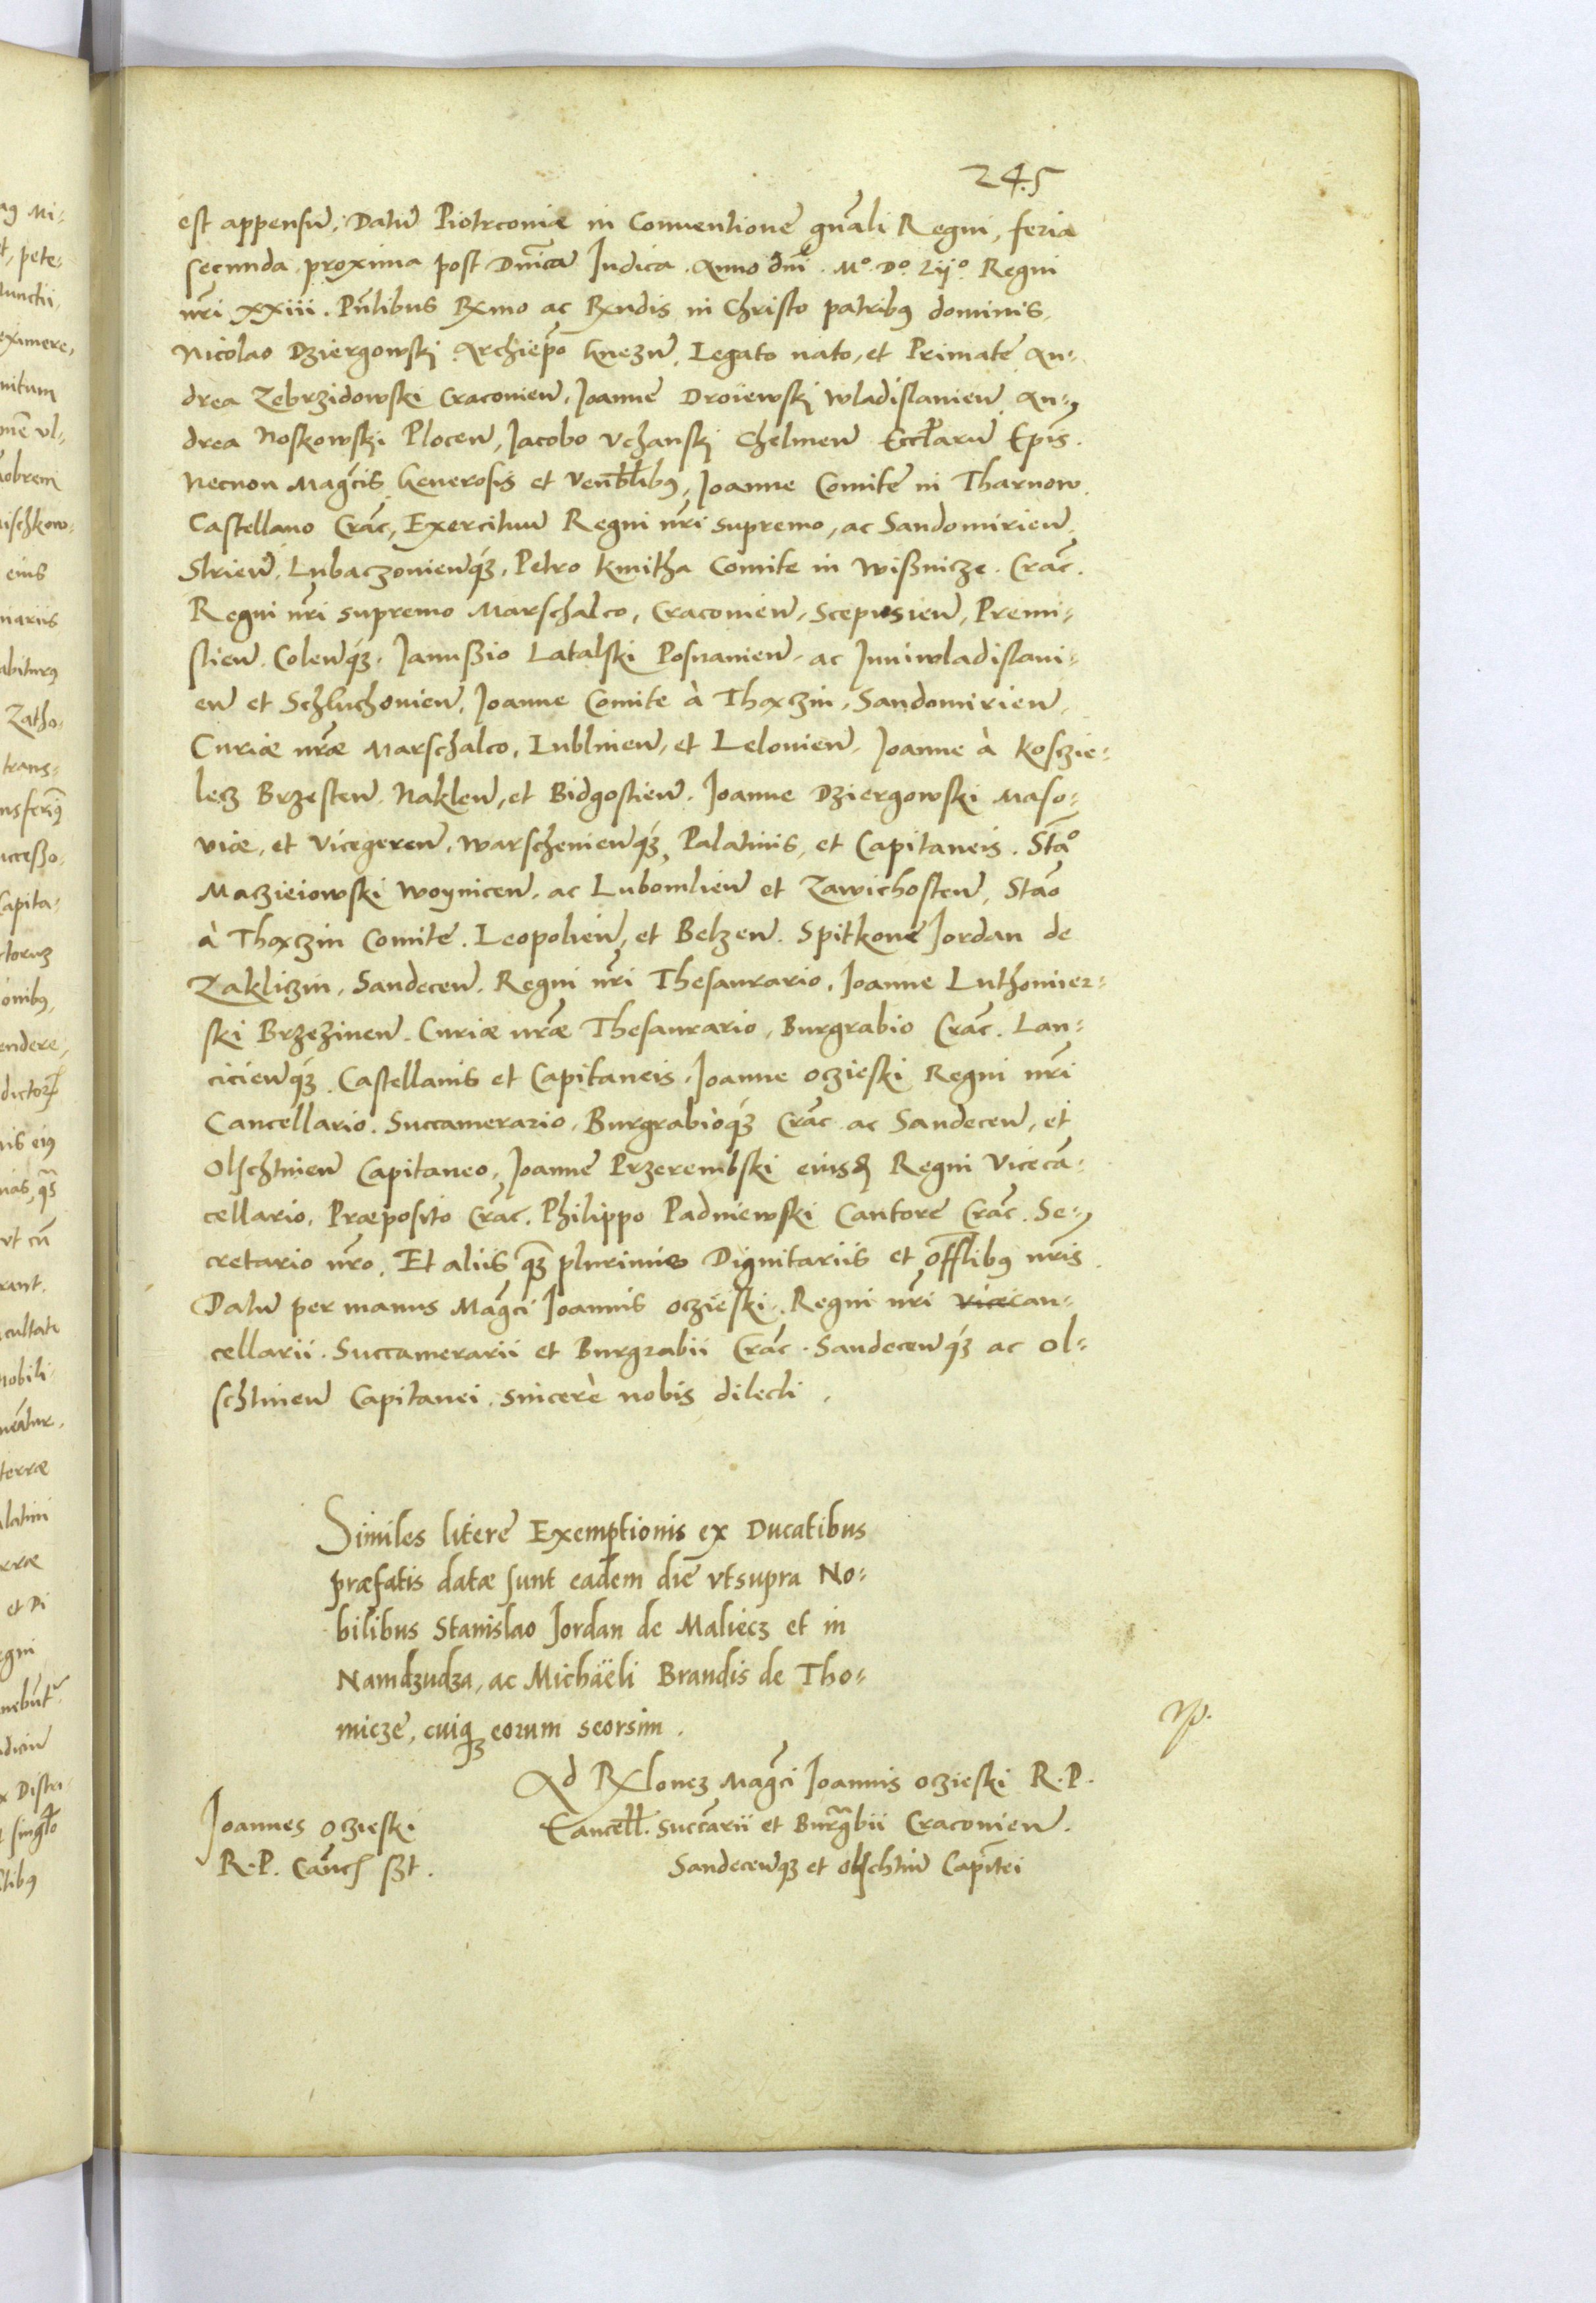 245
est appensũ. Datũ Piotrconiæ in Conuentione gn̄ali Regni, feria
secunda proxima post Dn̄icã Iudica. Anno dn̄i. M.º D.º Lijº Regni
nr̄i xxiii. Pn̄tibus Rx̄mo ac Rx̄ndis in Christo patribꝯ dominis,
Nicolao Dziergowski Archiep̄o Gnezn̄. Legato nato, et Primate An-
drea Zebrzidowski Cracouien̄, Joanne Droiewski Wladislauien̄ An-
drea Noskowski Plocen̄, Jacobo Vchanski Chelmen̄ Eccl̄iarũ Ep̄is.
Necnon Mag̃cis Generosis et Ven̄bl̄ibꝯ, Joanne Comite in Tharnow
Castellano Crac̃, Exercituũ Regni nr̄i supremo, ac Sandomirien̄
Strien̄. Lubaczouien̄qꝫ, Petro Kmitha Comite in Wißnicze. Crac̃.
Regni nr̄i supremo Marschalco, Cracouien̄, Scepusien̄, Premi-
slien̄. Colen̄qꝫ. Janußio Latalski Posnanien̄. ac Juniwladislaui-
en̄ et Schluchouien̄, Joanne Comite à Thaczin, Sandomirien̄
Curiæ nr̄æ Marschalco, Lublinen̄, et Lelouien̄, Joanne à Koszie-
lecz Brzesten̄. Naklen̄, et Bidgostien̄. Joanne Dziergowski Maso-
uiæ, et Vicegeren̄. Warschenien̄qꝫ Palatinis, et Capitaneis. Sta͠º
Maczieiowski Woynicen̄. ac Lubomlien̄ et Zawichosten̄, Stão
à Thaczin Comite. Leopolien̄, et Belzen̄. Spitkone Jordan de
Zakliczin, Sandecen̄. Regni nr̄i Thesaurario, Joanne Luthomier-
ski Brzezinen̄. Curiæ nr̄æ Thesaurario, Burgrabio Crac̃. Lan-
cicien̄qꝫ. Castellanis et Capitaneis. Joanne Oczieski Regni nr̄i
Cancellario. Succamerario, Burgrabioqꝫ Crac̃ ac Sandecen̄, et
Olschtinen̄ Capitaneo, Joanne Przerembski eiusd̃ Regni Vicecã-
cellario, Præposito Crac̃. Philippo Padniewski Cantore Crac̃. Se-
cretario nr̄o. Et aliis qꝫ plurimis Dignitariis et Offl̄ibꝯ nr̄is.
Datũ per manus Mag̃ci Joannis Oczieski. Regni nr̄i Vicecan-
cellarii. Succamerarii et Burgrabii Crac̃. Sandecen̄qꝫ ac Ol-
schtinen̄ Capitanei. sincerè nobis dilecti.
Similes litere Exemptionis ex Ducatibus
præfatis datæ sunt eadem die vtsupra No-
bilibus Stanislao Jordan de Maliecz et in
Namdzudza, ac Michäeli Brandis de Tho-
micze, cuiqꝫ eorum seorsim.
Ad Rx̄lonez Mag̃ci Joannis Oczieski R. P.
Cancell̄. Succãrii et Burg̃bii Cracouien̄.
Sandecen̄qꝫ et Olschtin̄ Capit̃ei
Joannes Oczieski
R. P. Canc̃ sst.